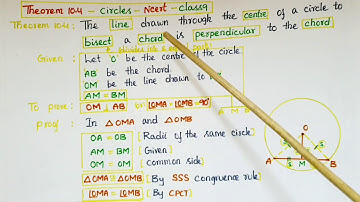 Theorem 10.4 - Circles - Ncert - class 9
Theorem 10.4: The line drawn through the centre of a circle to
bisect a chord is perpendicular to the chord
Given : Let 'O' be the centre of the circle
AB be the chord
OM be the line drawn to
AM = BM
To prove : OM ⊥ AB or ∠OMA = ∠OMB = 90°
A M B
Proof : In △OMA and △OMB
OA = OB [Radii of the same circle]
AM = BM [Given]
OM = OM [Common side]
△OMA ≅ △OMB [By SSS congruence rule]
∠OMA = ∠OMB [By CPCT]
O
S S
A S M B